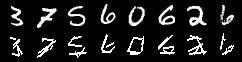 3 7 5 6 0 6 2 6
3 7 5 6 0 6 2 6